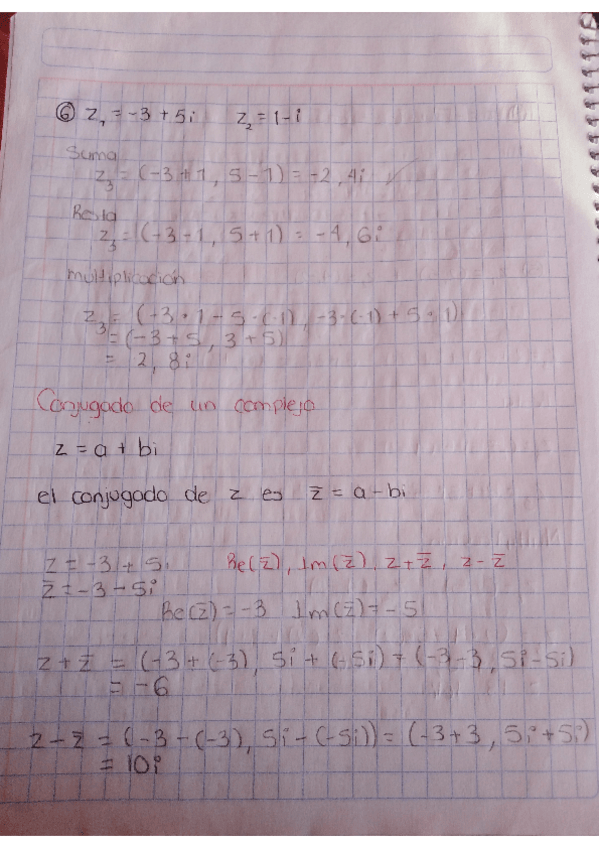 ⑥ z₁ = -3 + 5i z₂ = 1 - i
Suma
z₃ = (-3+1, 5-1) = -2, 4i
Resta
z₃ = (-3-1, 5+1) = -4, 6i
multiplicación
z₃ = (-3 · 1 - 5 · (-1), -3·(-1) + 5 · 1)
= (-3 + 5, 3 + 5)
= 2, 8i
Conjugado de un complejo
z = a + bi
el conjugado de z es z̄ = a - bi
z = -3 + 5i Re(z̄), Im(z̄), z + z̄, z - z̄
z̄ = -3 - 5i
Re(z̄) = -3 Im(z̄) = -5
z + z̄ = (-3 + (-3), 5i + (-5i) = (-3-3, 5i-5i)
= -6
z - z̄ = (-3 - (-3), 5i - (-5i)) = (-3+3, 5i+5i)
= 10i